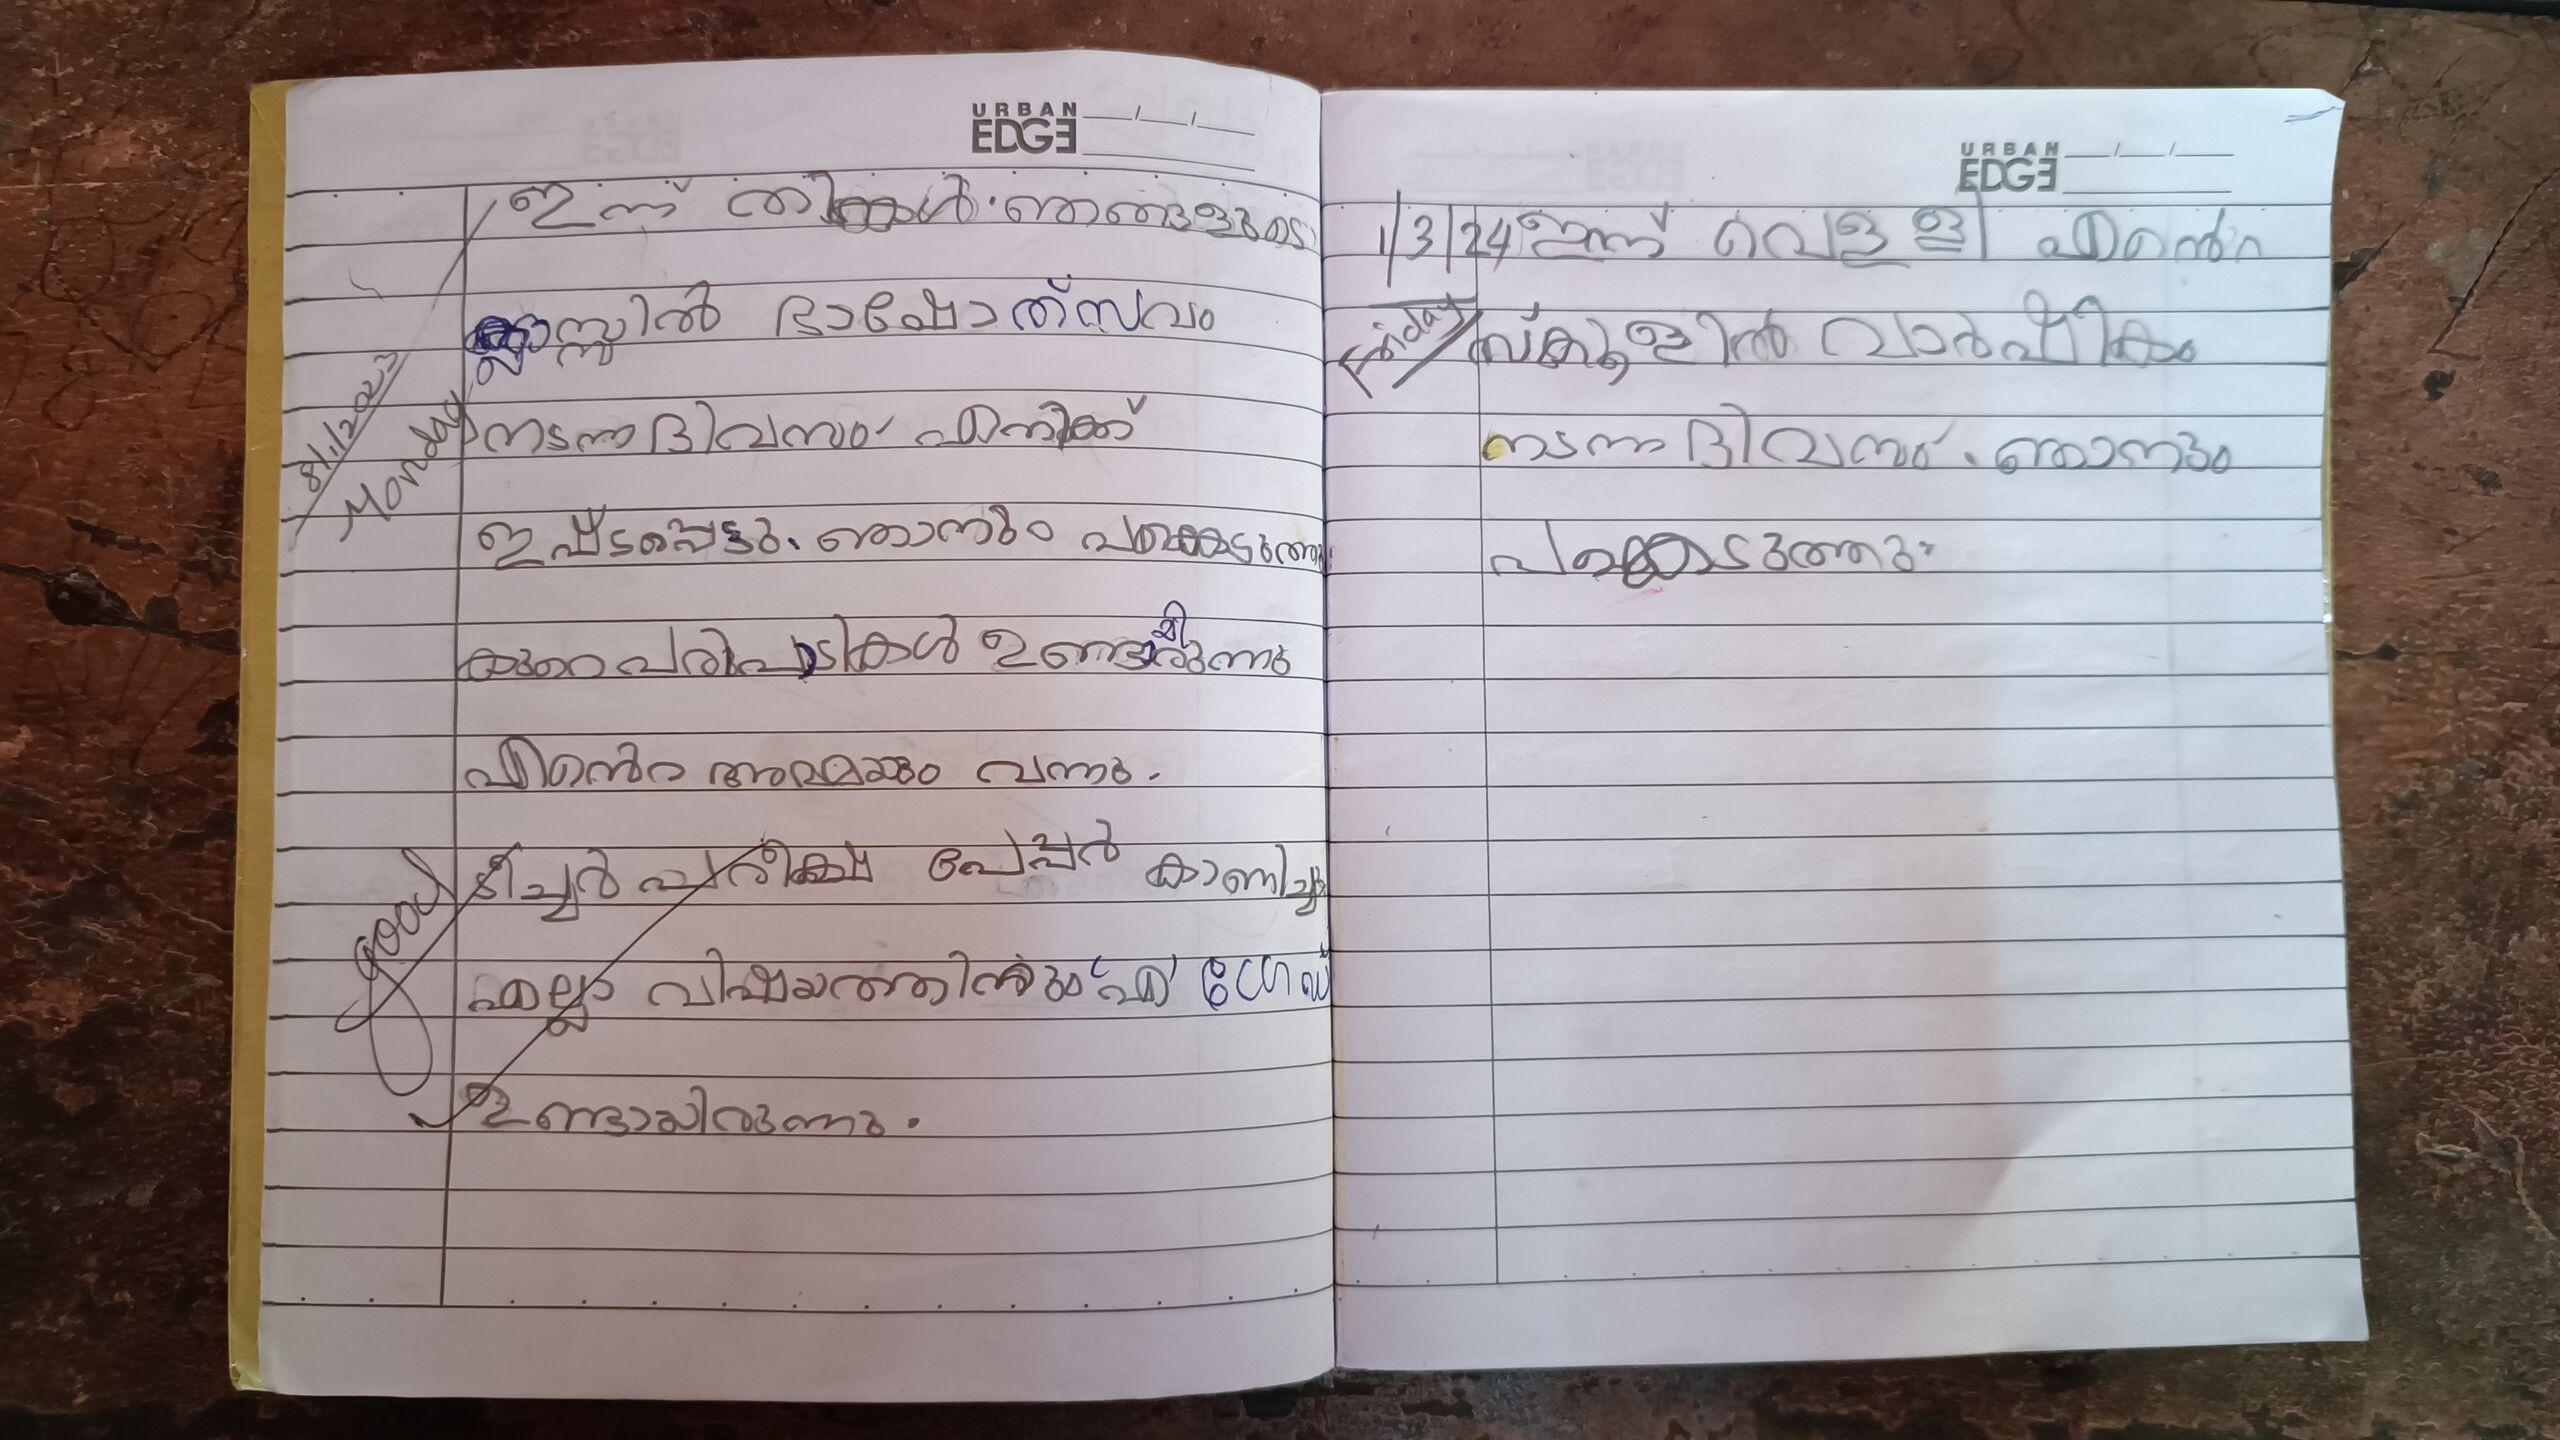 URBAN
EDGE
ഇന്ന് തിങ്കൾ. ഞങ്ങളുടെ
ക്ലാസ്സിൽ ഭാഷോത്സവം
8/1/2023
Monday
നടന്ന ദിവസം എനിക്ക്
ഇഷ്ടപ്പെട്ടു. ഞാനും പങ്കെടുത്തു.
കുറെ പരിപാടികൾ ഉണ്ടായിരുന്നു
എൻെറ അമ്മയും വന്നു.
ടീച്ചർ പരീക്ഷ പേപ്പർ കാണിച്ചു
good
എല്ലാ വിഷയത്തിനും 'എ' ഗ്രേഡ്
ഉണ്ടായിരുന്നു.
URBAN
EDGE
1/3/24 ഇന്ന് വെള്ളി എൻെറ
Friday
സ്കൂളിൽ വാർഷീകം
നടന്ന ദിവസം. ഞാനും
പങ്കെടുത്തു.